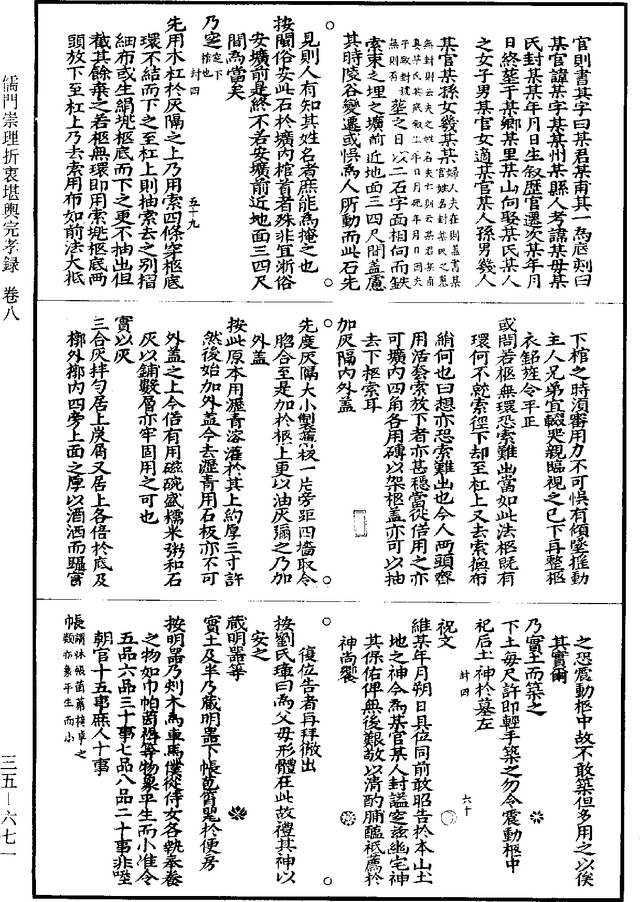 官則書其字曰某君某甫其一爲底刻曰
某官諱某字某某州某縣人考諱某母某
氏封某某年月日生叙歷官遷次某年月
日終葬于某鄉某里某山向娶某氏某人
之女子男某官女適某官某人孫男幾人
某官某孫女幾某某 婦人夫在則蓋書某官姓名
葬之日以二石字面相向而鉄
索束之埋之壙前近地面三四尺間蓋慮
其時陵谷變遷或悞爲人所動而此石先
見則人有知其姓名者庶能爲掩之也
按閩俗安此石於壙内棺首者殊非宜浙俗
安壙前是終不若安壙前近地面三四尺
間爲當矣
乃窆
封四
五十九
先用木杠於灰隔之上乃用索四條穿柩底
環不結而下之至杠上則抽索去之别摺
細布或生絹兠柩底而下之更不抽出但
截其餘棄之若柩無環即用索兠柩底兩
頭放下至杠上乃去索用布如前法大抵
下棺之時湏審用力不可悞有傾墜摇動
主人兄弟宜輟哭親臨視之已下再整柩
衣銘旌令平正
或問若柩無環恐索難出當如此法柩既有
環何不就索徑下却至杠上又去索換布
綃何也曰想亦恐索難出也今人兩頭齊
用活套索放下者亦甚穩當從俗用之亦
可壙内四角各用磚以架柩蓋亦可以抽
去下柩索耳
加灰隔内外蓋
先度灰隔大小製薄板一片旁距四墻取令
脗合至是加於柩上更以油灰彌之乃加
外蓋
按此原本用瀝青溶灌於其上約厚三寸許
然後始加外蓋今去瀝青用石板亦不可
外蓋之上今俗有用磁碗盛糯米粥和石
灰以鋪數層亦牢固用之可也
實以灰
三合灰拌匀居上炭屑又居上各倍於底及
椁外椁内四旁上面之厚以酒洒而躡實
之恐震動柩中故不敢築但多用之以俟
其實爾
乃實土而築之
下土每尺許即輕手築之勿令震動柩中
祀后土神於墓左
封四
六十
祝文
維某年月朔日具位同前敢昭告於本山土
地之神今爲某官某人封謚窆兹幽宅神
其保佑俾無後艱敬以清酌脯醢祗薦於
神尚饗
復位告者再拜徹出
按劉氏璋曰爲父母形體在此故禮其神以
安之
藏明器等
實土及半乃藏明器下帳苞筲甖於便房
按明器乃刻木爲車馬僕從侍女各執奉養
之物如巾帕茵褥等物象平生而小准令
五品六品三十事七品八品二十事非陞
朝官十五事庶人十事
帳 謂牀帳茵蓆椅卓之類亦象平生而小
儒門崇理折衷堪輿完孝録 卷八
三五-六七一